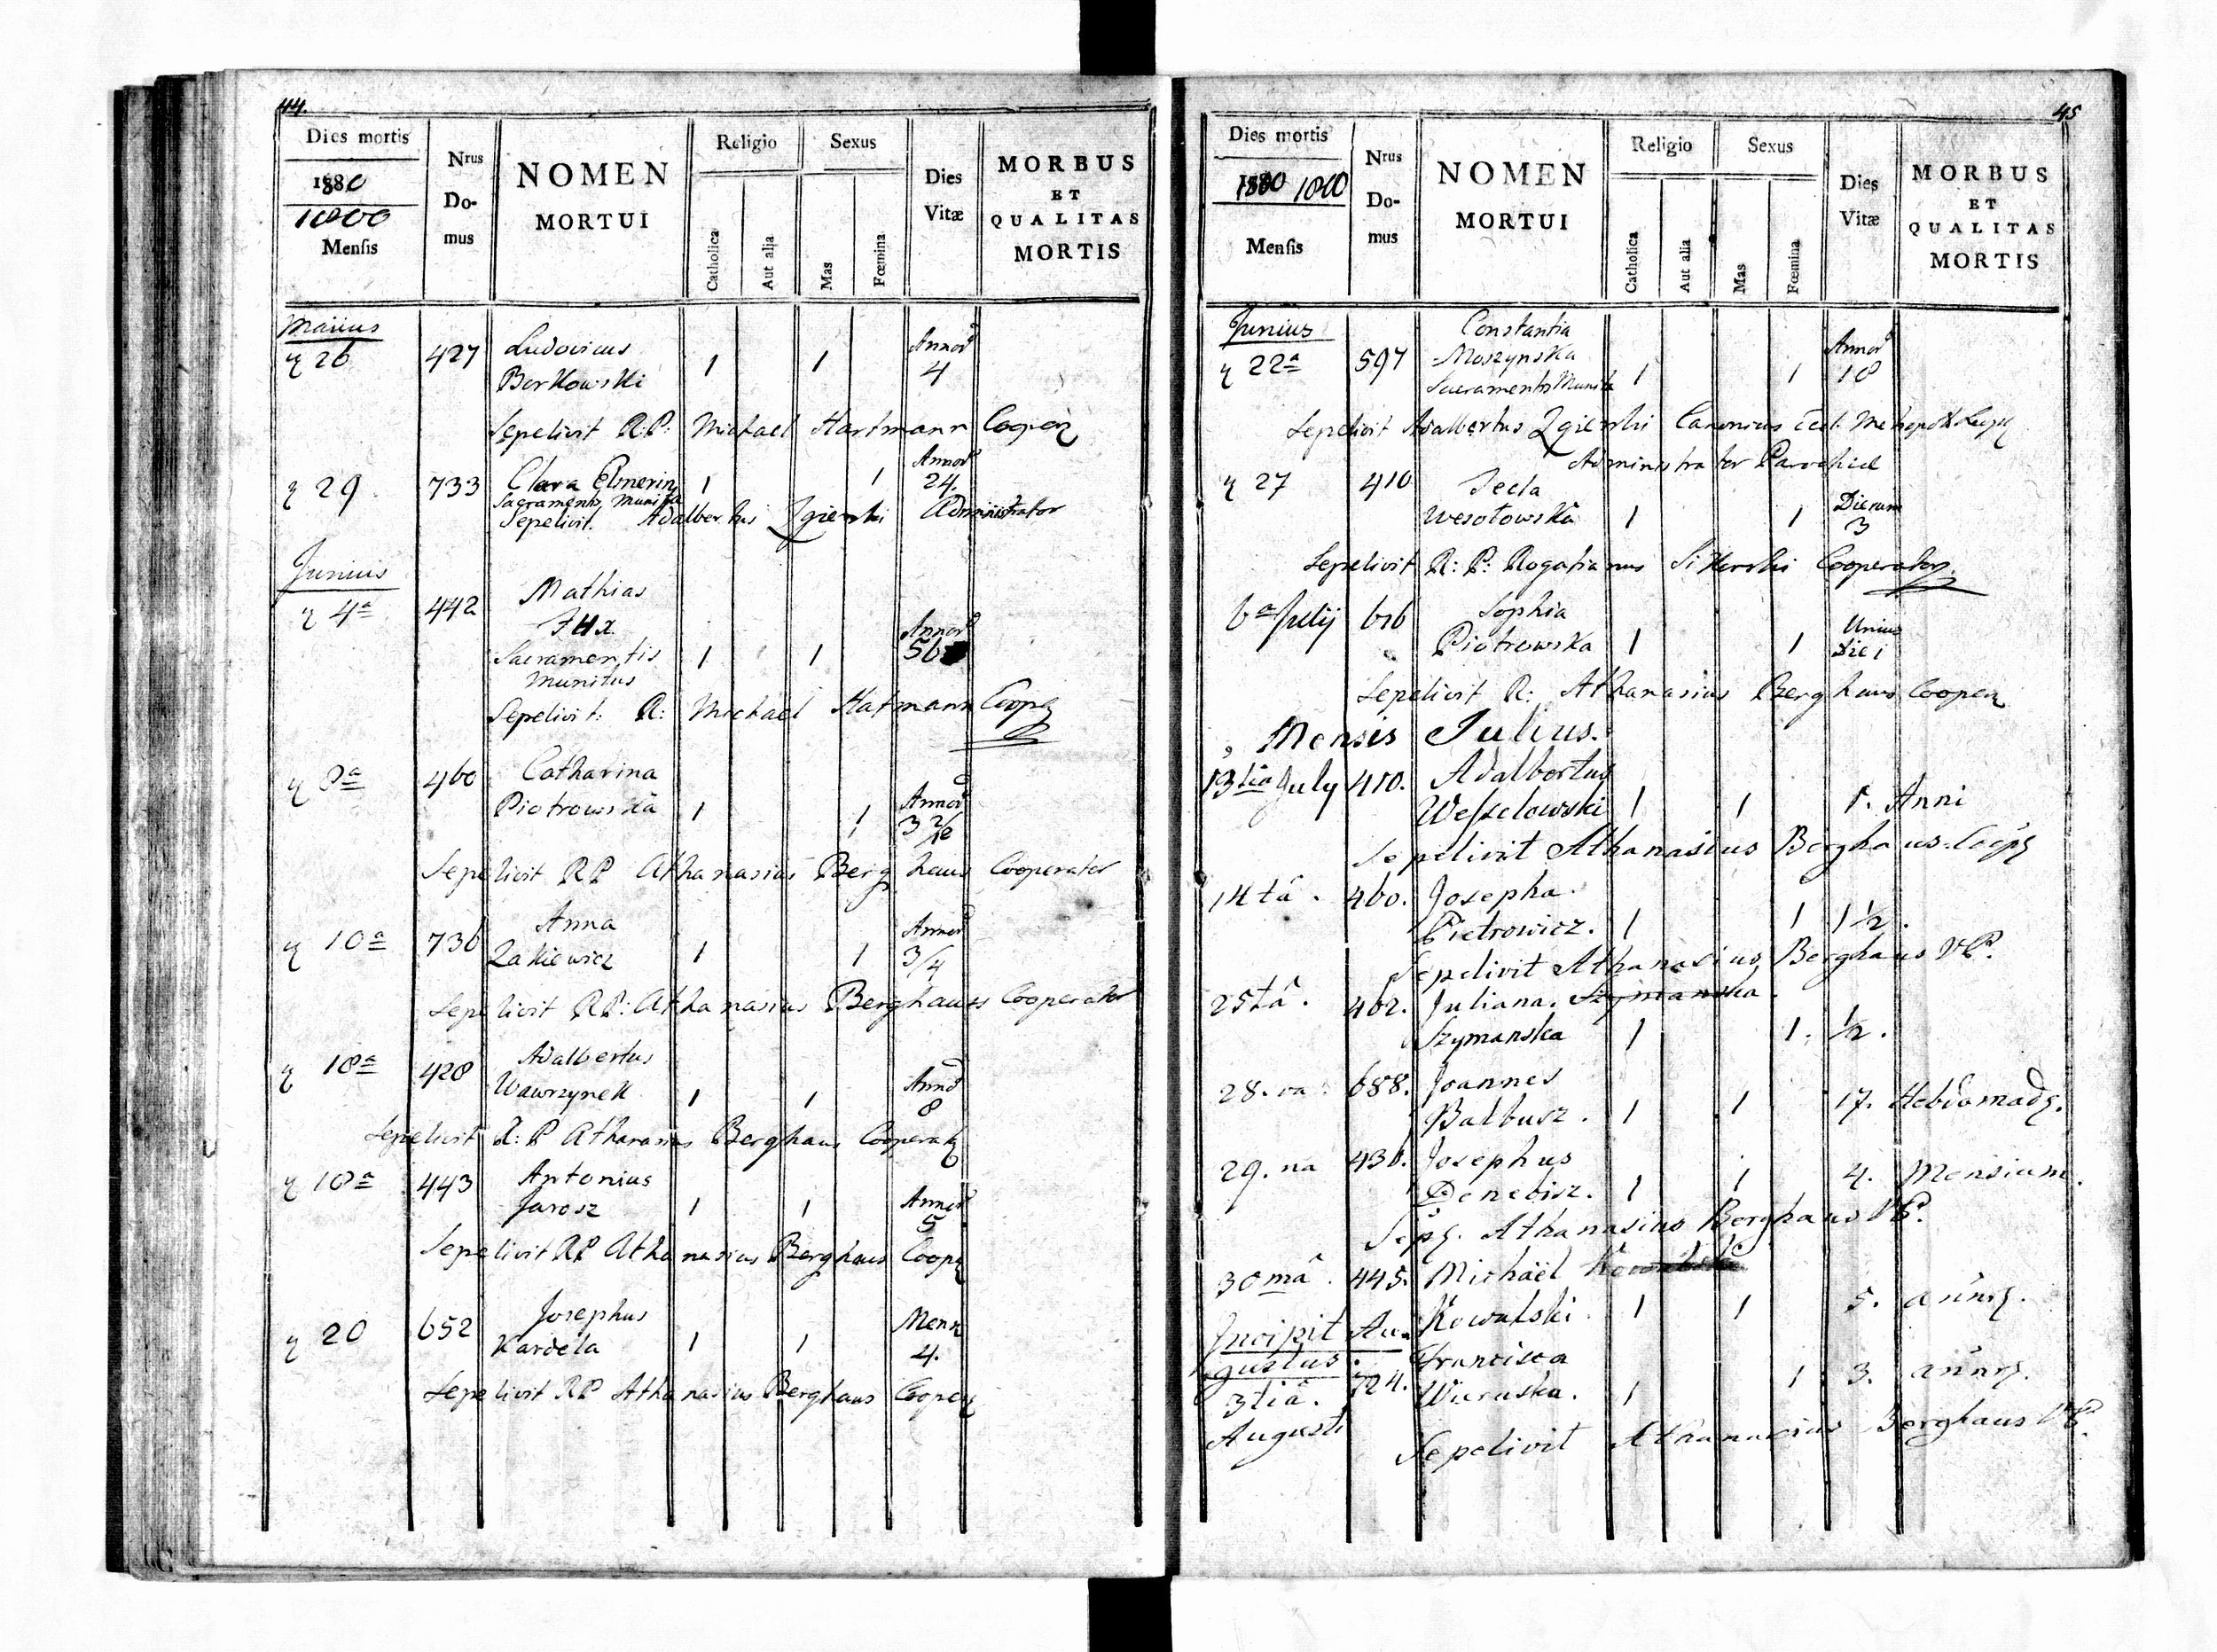 44.
Dies mortis
1880
1800
Mensis
Nrus Domus
NOMEN MORTUI
Religio
Catholica
Aut alia
Sexus
Mas
Fœmina
Dies Vitæ
MORBUS ET QUALITAS MORTIS
Maiius
26 427 Ludovicus Borkowski 1 1 Annor 4
Sepelivit R:P: Michael Hartmann Cooper
29. 733 Clara Elmerin 1 1 Annor 24.
Sacramentis Munita
Sepelivit. Adalbertus Zgierski Administrator
Junius
4ª 442 Mathias
Sacramentis 1 1 Annor 56
Munitus
Sepelivit: R: Michael Hatmann Coop
8ª 460 Catharina
Piotrowska 1 1 Annor 3
Sepelivit RP Athanasius Berghaus Cooperator
10ª 736 Anna
Zakiewicz 1 1 Annor 3/4
Sepelivit RP: Athanasius Berghauss Cooperator
18ª 428 Adalbertus
Wawrzynek 1 1 Anno 8
Sepelivit R: P Athanasius Berghaus Cooperat
18ª 443 Antonius
Jarosz 1 1 Annor 5
Sepelivit RP Athanasius Berghaus Coop
20 652 Josephus
Kardela 1 1 Mens 4.
Sepelivit RP Athanasius Berghaus Cooper
45
Dies mortis
1800
Mensis
Nrus Domus
NOMEN MORTUI
Religio
Catholica
Aut alia
Sexus
Mas
Fœmina
Dies Vitæ
MORBUS ET QUALITAS MORTIS
Junius Constantia
22ª 597 Moszynska Annor 18
Sacramentis Munita 1 1
Sepelivit Adalbertus Zgierski Canonicus
Administrator Parochiæ
27 410 Tecla
Wesołowska 1 1 Dierum 3
Sepelivit R: P: Rogatianus Sikorski Cooperator
6ª Julij 616 Sophia
Piotrowska 1 1 Unius Diei
Sepelivit R: Athanasius Berghaus Cooper
Mensis Julius.
13tia July 410. Adalbertus
Wesselowski 1 1 1. Anni
Sepelivit Athanasius Berghaus. Coop
14tâ. 460. Josepha.
Pietrowicz. 1 1 1½.
Sepelivit Athanasius Berghaus VP.
25tâ. 462. Juliana. Szymanska.
Szymanska 1 1. ½.
28.va. 688. Joannes
Balbusz. 1 1 17. Hebdomad.
29.na 438. Josephus
Denebisz. 1 1 4. Mensium.
Sep. Athanasius Berghaus VP.
30mâ. 445. Michäel
Kowalski. 1 1 5. ann.
Incipit Augustus.
3tiâ. Augusti 724. Francisca
1 1 3. ann.
Sepelivit Athanasius Berghaus VP.